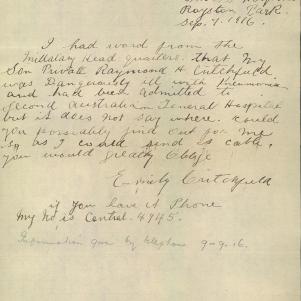 Royston Park
Sep. 7. 1916.
I had word from the
Millatary Head quarters. that my
Son Private Raymond H. Critchfield
was Dangerously ill with Pneumonia
and had been admitted to
second Australian General Hospital
but it does not say where. could
you possiably find out for me
so as I could send a cable,
you would greatly Oblige
Critchfield
if you have a Phone
My No is Central. 4945.
Information given by telephone 9-9-16.